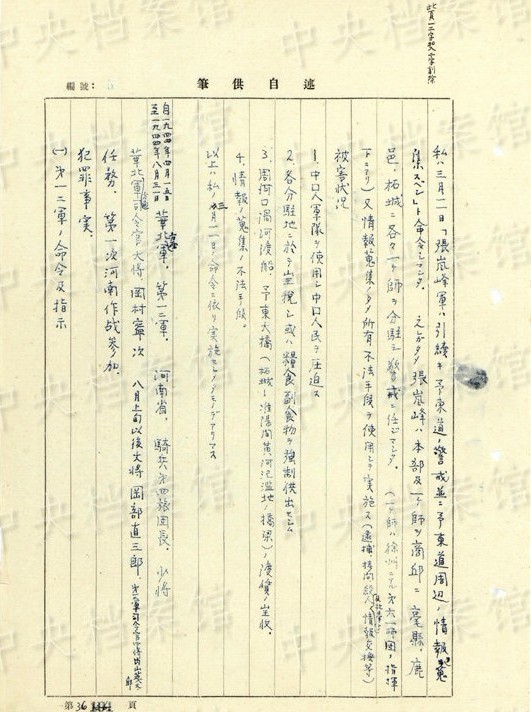 此頁一二字、改字、削除
編號：
述自供筆
私ハ三月一日「張嵐峰軍ハ引續キ予東道ノ警戒並ニ予東道周辺ノ情報ヲ蒐
集スベシ」ト命令シマシタ。之レガタメ張嵐峰ハ本部及一ヶ師ヲ商邱ニ亳縣、鹿
邑、柘城ニ各々一ヶ師ヲ分駐シ警戒ニ任ジマシタ。（一ヶ師ハ徐州ニテ第六一師團ノ指揮
下ニアリ）又情報蒐集ノタメ所有不法手段ヲ使用シテ実施ス（逮捕拷問殺人、情報交換等）
被害状況
1、中口人軍隊ヲ使用シ中口人民ヲ圧迫ス
2、各分駐地ニ於テ坐税シ或ハ糧食副食物ヲ強制供出セシム
3、周河口渦河渡船、予東大橋（柘城ー淮陽間黄河氾濫地ノ橋梁）ノ渡賃ノ坐收。
4、情報ノ蒐集ノ不法手段。
以上ハ私ノ三月一日ノ命令ニ依リ実施セシメタモノデアリマス
自一九四四年四月一五日
至一九四四年八月三一日
華北方面軍、第一二軍、河南省、騎兵第四旅團長、少將
華北方面軍司令官大將岡村寧次 八月上旬以後大將岡部直三郎、第一二軍司令官中將内山英太郎
任務、第一次河南作战参加。
犯罪事実、
(一)第一二軍ノ命令及指示
第36頁